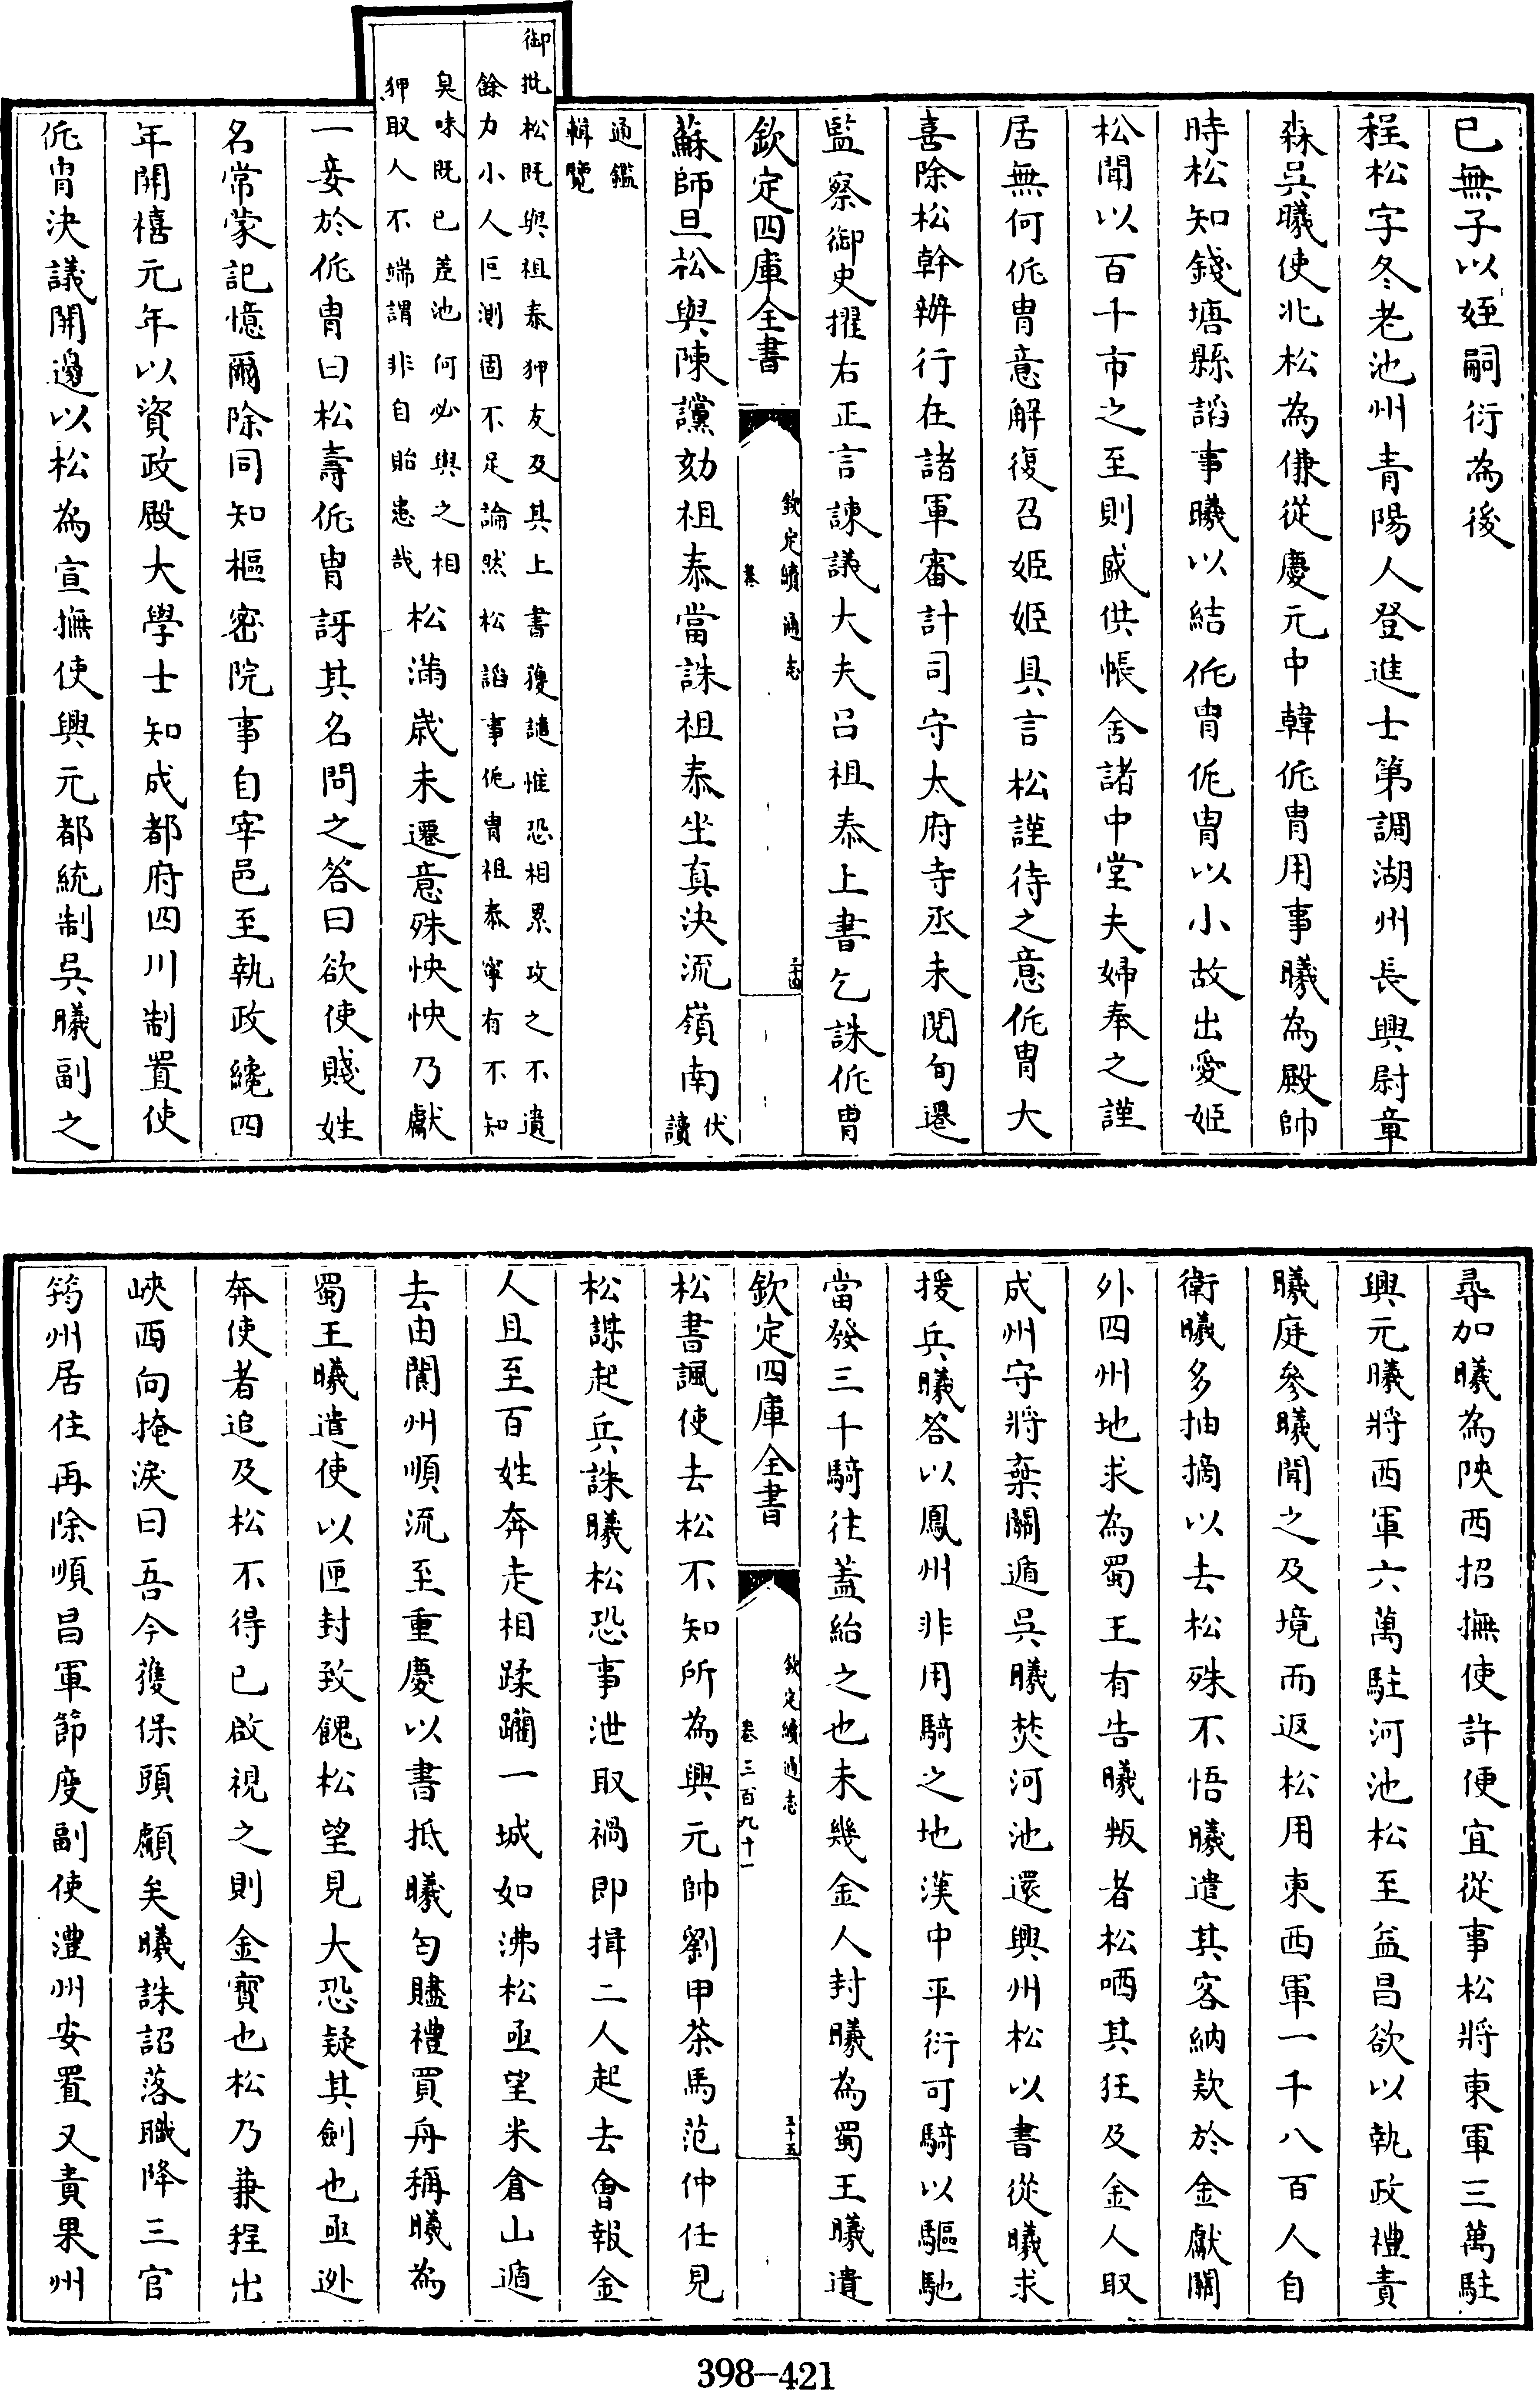 已無子以姪嗣衍為後
程松字冬老池州青陽人登進士第調湖州長興尉章
森吳曦使北松為傔從慶元中韓侂胄用事曦為殿帥
時松知錢塘縣諂事曦以結侂胄侂胄以小故出愛姬
松聞以百千市之至則盛供帳舍諸中堂夫婦奉之謹
居無何侂胄意解復召姬姬具言松謹待之意侂胄大
喜除松幹辦行在諸軍審計司守太府寺丞未閱旬遷
監察御史擢右正言諫議大夫呂祖泰上書乞誅侂胄
欽定四庫全書
欽定續通志
卷
三十四
蘇師旦松與陳讜劾祖泰當誅祖泰坐真決流嶺南伏讀
通鑑
輯覽
御批松既與祖泰狎友及其上書獲譴惟恐相累攻之不遺
餘力小人叵測固不足論然松諂事侂胄祖泰寧有不知
臭味既已差池何必與之相
狎取人不端謂非自貽患哉
松滿歲未遷意殊怏怏乃獻
一妾於侂胄曰松壽侂胄訝其名問之答曰欲使賤姓
名常蒙記憶爾除同知樞密院事自宰邑至執政纔四
年開禧元年以資政殿大學士知成都府四川制置使
侂胄決議開邊以松為宣撫使興元都統制吳曦副之
尋加曦為陜西招撫使許便宜從事松將東軍三萬駐
興元曦將西軍六萬駐河池松至益昌欲以執政禮責
曦庭參曦聞之及境而返松用東西軍一千八百人自
衛曦多抽摘以去松殊不悟曦遣其客納欵於金獻關
外四州地求為蜀王有告曦叛者松哂其狂及金人取
成州守將棄關遁吳曦焚河池還興州松以書從曦求
援兵曦答以鳳州非用騎之地漢中平衍可騎以驅馳
當發三千騎往蓋紿之也未幾金人封曦為蜀王曦遺
欽定四庫全書
欽定續通志
卷三百九十一
三十五
松書諷使去松不知所為興元帥劉甲茶馬范仲任見
松謀起兵誅曦松恐事泄取禍即揖二人起去會報金
人且至百姓奔走相蹂躪一城如沸松亟望米倉山遁
去由閬州順流至重慶以書抵曦匄贐禮買舟稱曦為
蜀王曦遣使以匣封致餽松望見大恐疑其劍也亟逃
奔使者追及松不得已啟視之則金寶也松乃兼程出
峽西向掩淚曰吾今獲保頭顱矣曦誅詔落職降三官
筠州居住再除順昌軍節度副使澧州安置又責果州
398-421